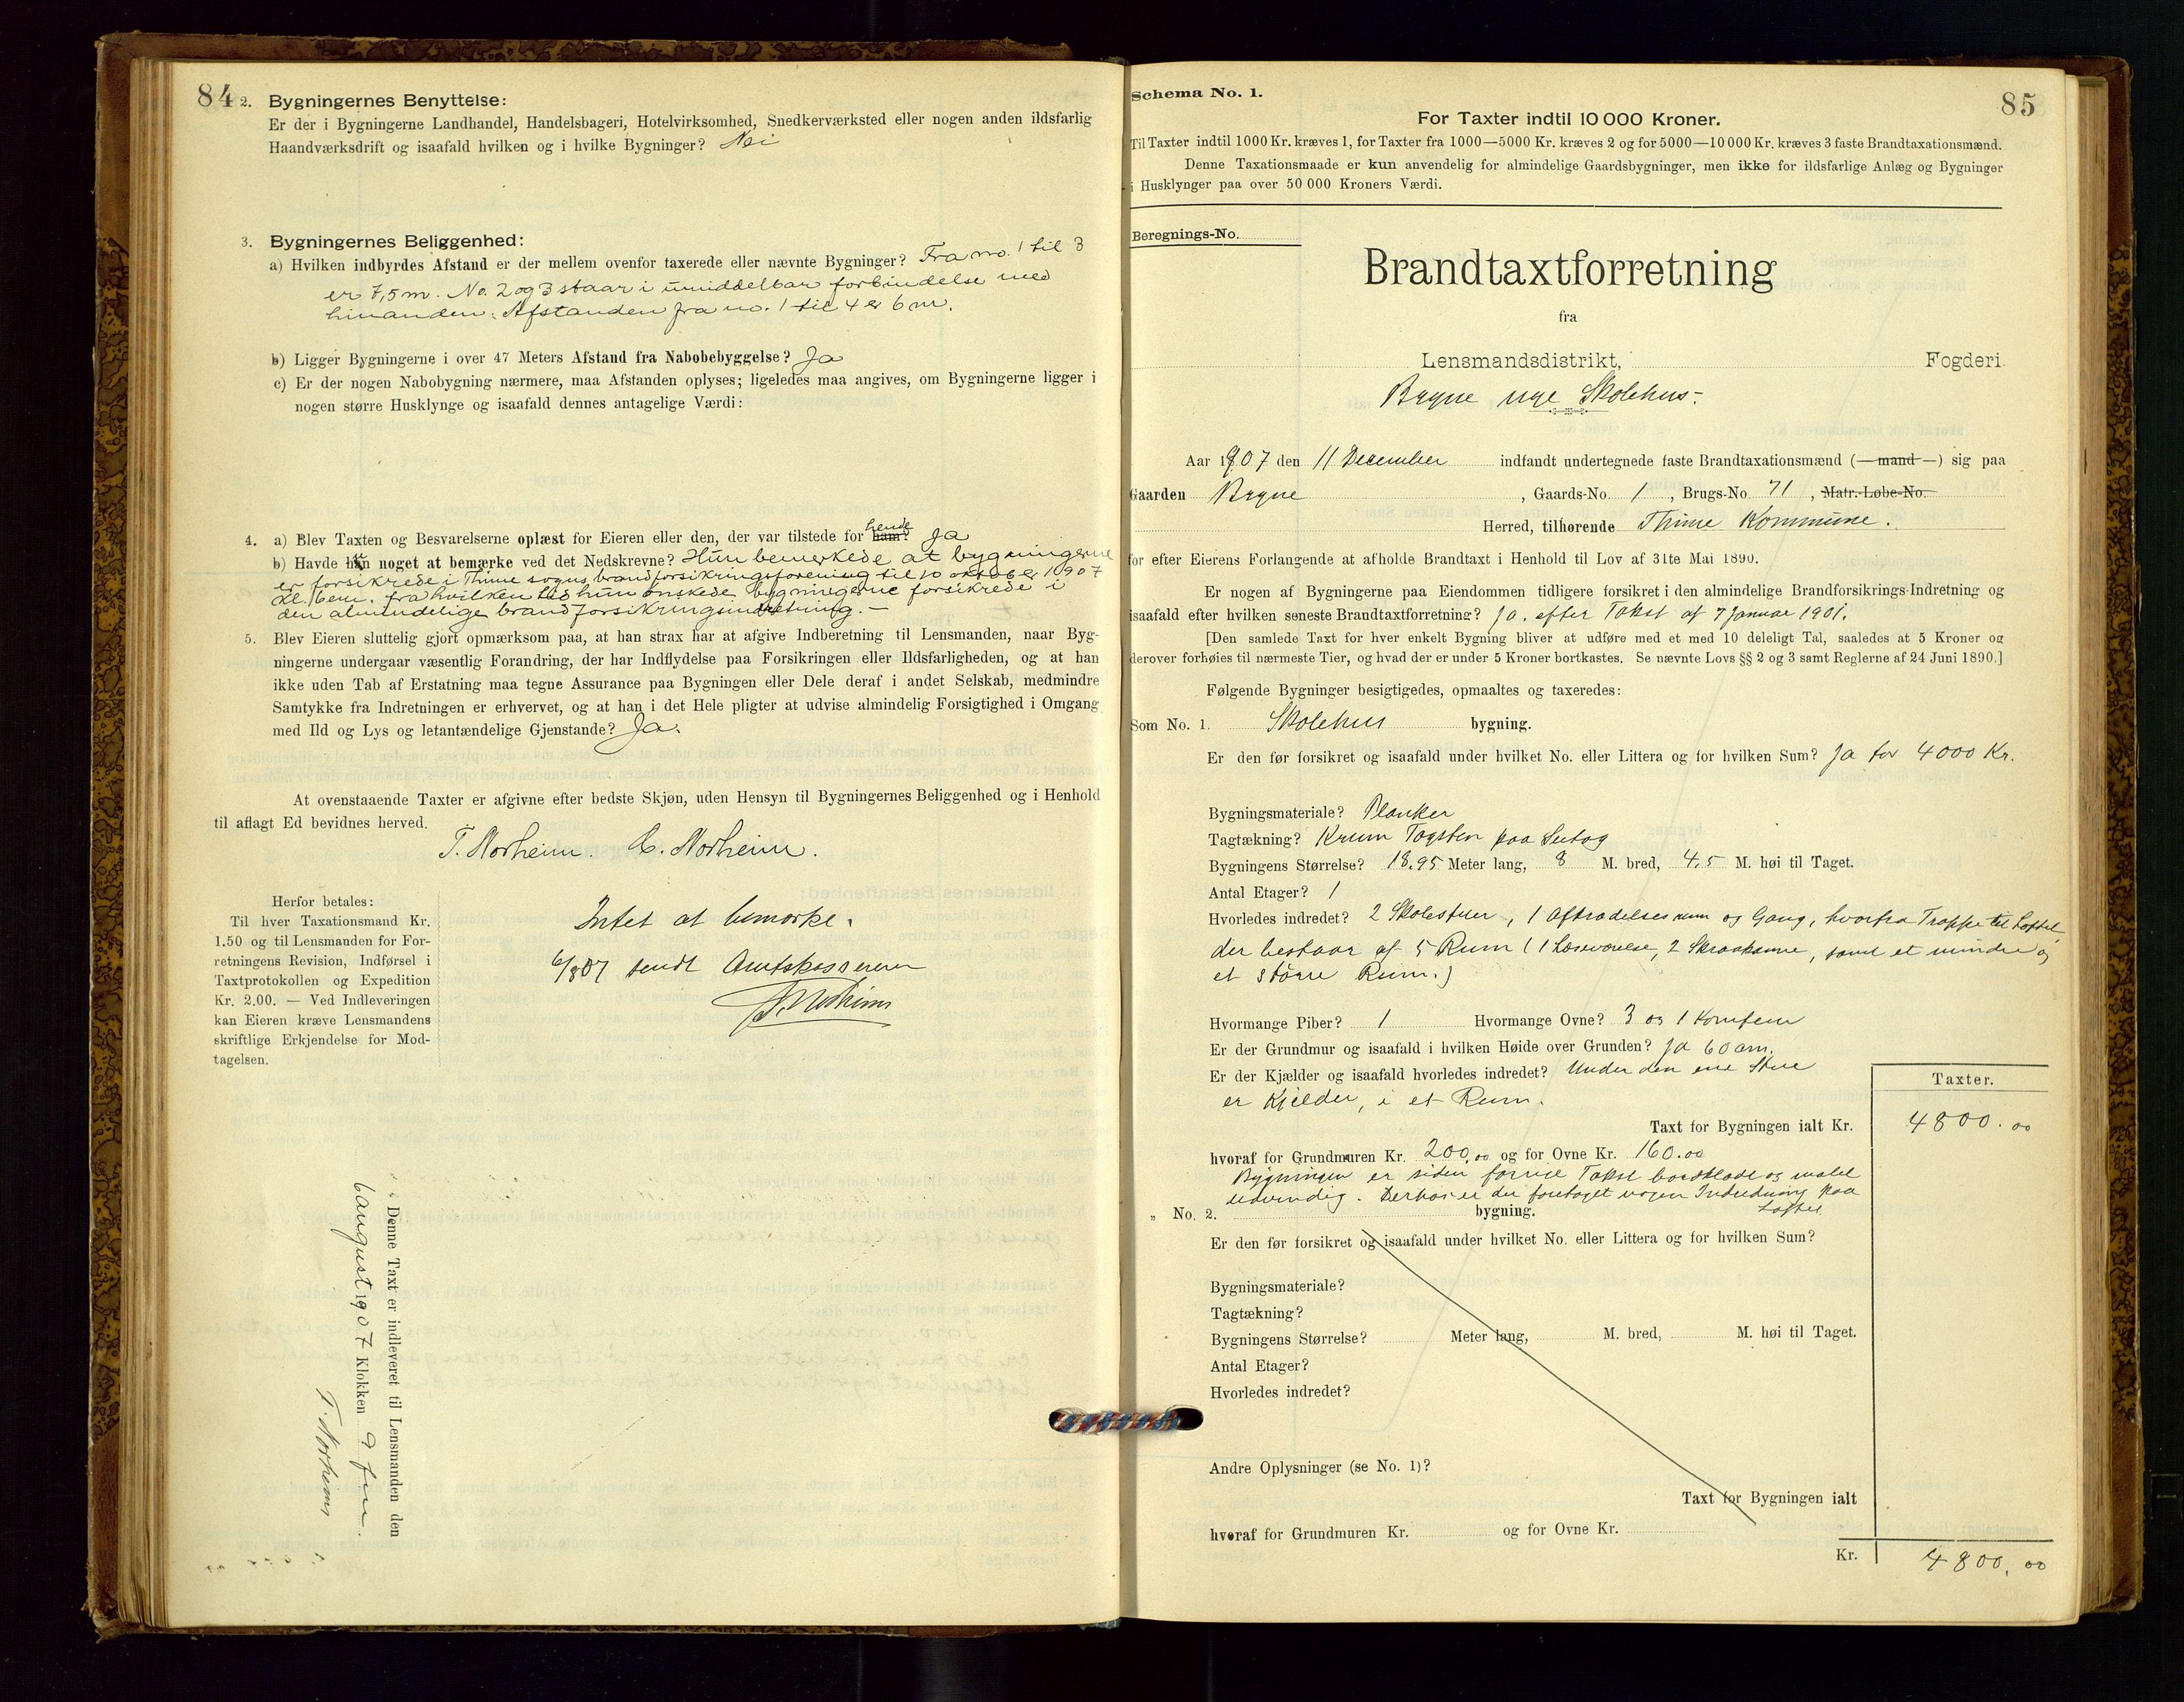 84
2. Bygningernes Benyttelse:
Er der i Bygningerne Landhandel, Handelsbageri, Hotelvirksomhed, Snedkerværksted eller nogen anden ildsfarlig
Haandværksdrift og isaafald hvilken og i hvilke Bygninger? Nei
3. Bygningernes Beliggenhed:
a) Hvilken indbyrdes Afstand er der mellem ovenfor taxerede eller nævnte Bygninger? Fra no. 1 til 3
er 7,5 m. No. 2 og 3 staar i umiddelbar forbindelse med
hinanden. Afstanden fra no. 1 til 4 er 6 m.
b) Ligger Bygningerne i over 47 Meters Afstand fra Nabobebyggelse? Ja
c) Er der nogen Nabobygning nærmere, maa Afstanden oplyses; ligeledes maa angives, om Bygningerne ligger i
nogen større Husklynge og isaafald dennes antagelige Værdi:
4. a) Blev Taxten og Besvarelserne oplæst for Eieren eller den, der var tilstede for ham? hende Ja
b) Havde han noget at bemærke ved det Nedskrevne? Hun bemerkede at bygningerne
er forsikrede i Thime sogns brandforsikringsforening til 10 oktober 1907
kl. 6 em. fra hvilken tid hun ønskede bygningerne forsikrede i
den almindelige brandforsikringsindretning. —
5. Blev Eieren sluttelig gjort opmærksom paa, at han strax har at afgive Indberetning til Lensmanden, naar Byg-
ningerne undergaar væsentlig Forandring, der har Indflydelse paa Forsikringen eller Ildsfarligheden, og at han
ikke uden Tab af Erstatning maa tegne Assurance paa Bygningen eller Dele deraf i andet Selskab, medmindre
Samtykke fra Indretningen er erhvervet, og at han i det Hele pligter at udvise almindelig Forsigtighed i Omgang
med Ild og Lys og letantændelige Gjenstande? Ja.
At ovenstaaende Taxter er afgivne efter bedste Skjøn, uden Hensyn til Bygningernes Beliggenhed og i Henhold
til aflagt Ed bevidnes herved.
T. Norheim. C. Norheim.
Herfor betales:
Til hver Taxationsmand Kr.
1.50 og til Lensmanden for For-
retningens Revision, Indførsel i
Taxtprotokollen og Expedition
Kr. 2.00. — Ved Indleveringen
kan Eieren kræve Lensmandens
skriftlige Erkjendelse for Mod-
tagelsen.
Intet at bemærke.
6/8 07 sendt Amtskassereren
Norheim
Denne Taxt er indleveret til Lensmanden den
6 august 1907 Klokken 9 fm.
T. Norheim
85
Schema No. 1.
For Taxter indtil 10 000 Kroner.
Til Taxter indtil 1000 Kr. kræves 1, for Taxter fra 1000—5000 Kr. kræves 2 og for 5000—10 000 Kr. kræves 3 faste Brandtaxationsmænd.
Denne Taxationsmaade er kun anvendelig for almindelige Gaardsbygninger, men ikke for ildsfarlige Anlæg og Bygninger
i Husklynger paa over 50 000 Kroners Værdi.
Beregnings-No.
Brandtaxtforretning
fra
Lensmandsdistrikt, Fogderi.
Bryne nye Skolehus.
Aar 1907 den 11 December indfandt undertegnede faste Brandtaxationsmænd (—mand—) sig paa
Gaarden Bryne, Gaards-No. 1, Brugs-No. 71, Matr.-Løbe-No.
Herred, tilhørende Thime Kommune.
for efter Eierens Forlangende at afholde Brandtaxt i Henhold til Lov af 31te Mai 1890.
Er nogen af Bygningerne paa Eiendommen tidligere forsikret i den almindelige Brandforsikrings-Indretning og
isaafald efter hvilken seneste Brandtaxtforretning? Ja. efter Takst af 7 Januar 1901.
[Den samlede Taxt for hver enkelt Bygning bliver at udføre med et med 10 deleligt Tal, saaledes at 5 Kroner og
derover forhøies til nærmeste Tier, og hvad der er under 5 Kroner bortkastes. Se nævnte Lovs §§ 2 og 3 samt Reglerne af 24 Juni 1890.]
Følgende Bygninger besigtigedes, opmaaltes og taxeredes:
Som No. 1. Skolehus bygning.
Er den før forsikret og isaafald under hvilket No. eller Littera og for hvilken Sum? Ja for 4000 Kr.
Bygningsmateriale? Planker
Tagtækning? Krum Tagsten paa Sutag
Bygningens Størrelse? 18.95 Meter lang, 8 M. bred, 4.5 M. høi til Taget.
Antal Etager? 1
Hvorledes indredet? 2 Skolestuer, 1 Aftrædelsesrum og Gang, hvorfra Trappe til Loftet,
der bestaar af 5 Rum (1 Læseværelse, 2 Skraakamre, samt et mindre og
et større Rum.)
Hvormange Piber? 1 Hvormange Ovne? 3 og 1 Komfem
Er der Grundmur og isaafald i hvilken Høide over Grunden? Ja 60 cm.
Er der Kjælder og isaafald hvorledes indredet? Under den ene Stue
er Kjelder, i et Rum.
Taxter.
Taxt for Bygningen ialt Kr. 4800.00
hvoraf for Grundmuren Kr. 200.00 og for Ovne Kr. 160.00
Bygningen er siden forrige Takst bordklædt og malet
udvendig. Derhos er der foretaget nogen Indredning paa
Loftet.
„ No. 2. bygning.
Er den før forsikret og isaafald under hvilket No. eller Littera og for hvilken Sum?
Bygningsmateriale?
Tagtækning?
Bygningens Størrelse? Meter lang, M. bred, M. høi til Taget.
Antal Etager?
Hvorledes indredet?
Andre Oplysninger (se No. 1)?
Taxt for Bygningen ialt
hvoraf for Grundmuren Kr. og for Ovne Kr.
Kr. 4800.00